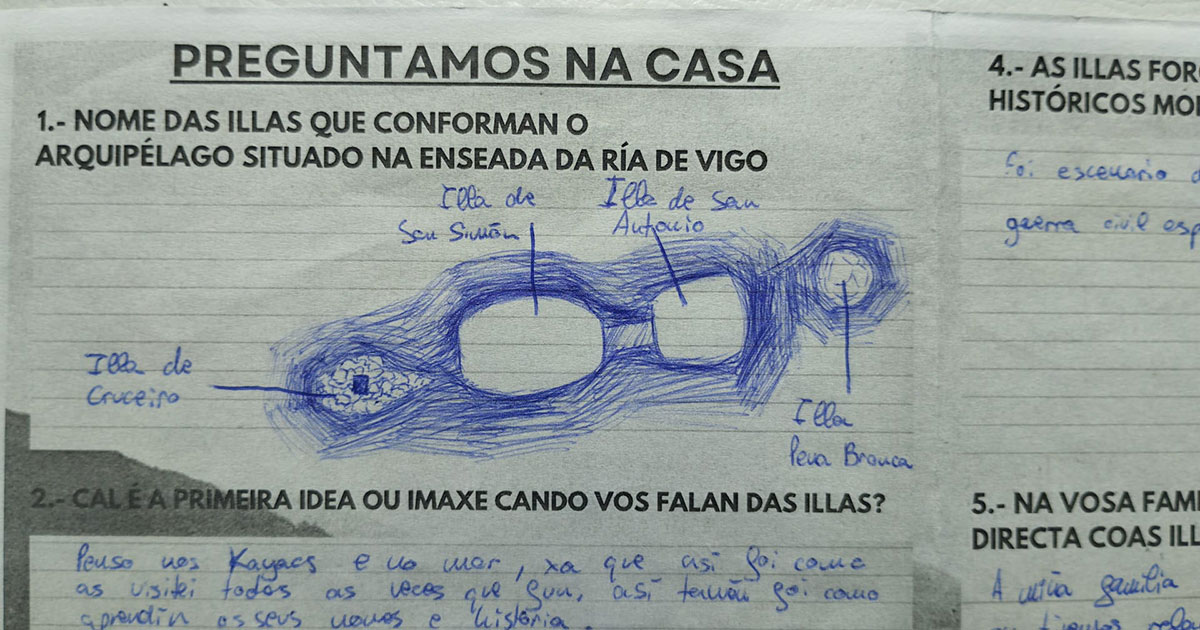 PREGUNTAMOS NA CASA
1.- NOME DAS ILLAS QUE CONFORMAN O
ARQUIPÉLAGO SITUADO NA ENSEADA DA RÍA DE VIGO
Illa de
San Simón
Illa de San
Antonio
Illa de
Cruceiro
Illa
Pena Branca
2.- CAL É A PRIMEIRA IDEA OU IMAXE CANDO VOS FALAN DAS ILLAS?
Penso nos Kayacs e no mar, xa que así foi como
as visitei todas as veces que fun, así tamén foi como
aprendín os seus nomes e história.
4.- AS ILLAS FOR
HISTÓRICOS MO
Foi escenario d
guerra civil esp
5.- NA VOSA FAMI
DIRECTA COAS ILL
A miña familia